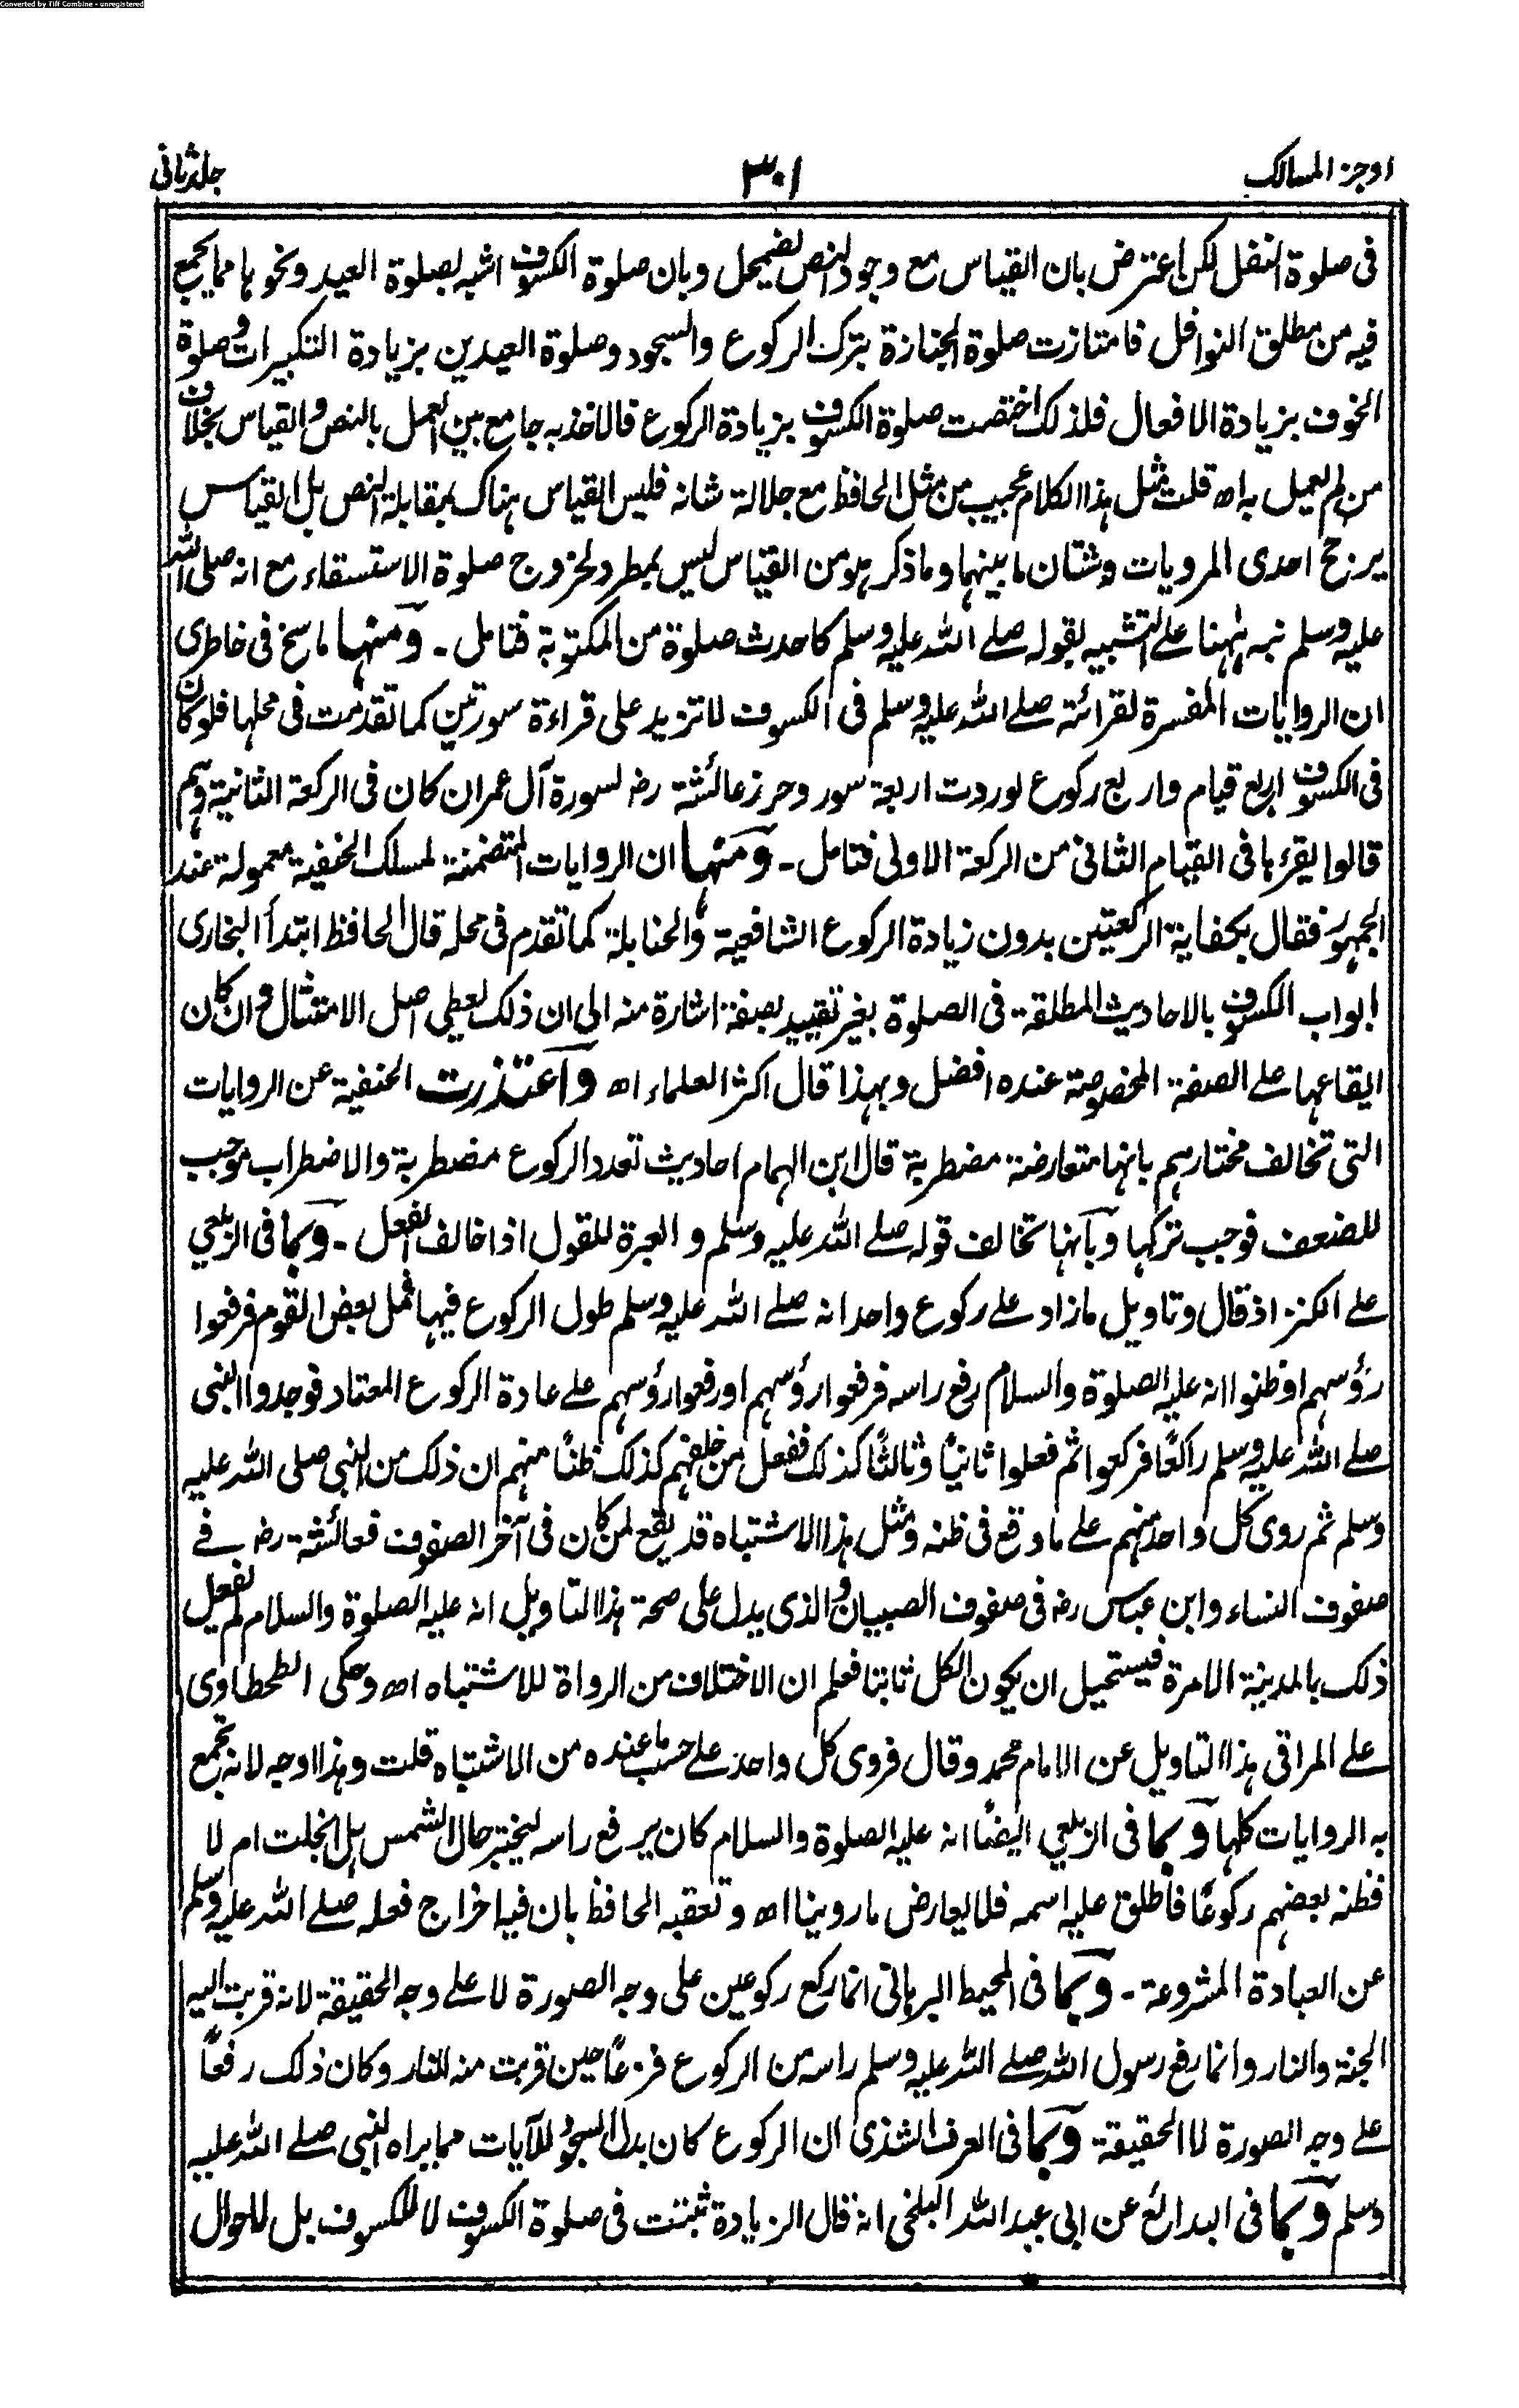 Converted by Tiff Combine - unregistered
اوجز المسالك
٣٠١
جلد ثانى
فى صلوة النفل لكن اعترض بان القياس مع وجود النص يضمحل وبان صلوة الكسوف اشبه بصلوة العيد ونحوها مما يجمع
فيه من مطلق النوافل فامتازت صلوة الجنازة بترك الركوع والسجود وصلوة العيدين بزيادة التكبيرات وصلوة
الخوف بزيادة الافعال فلذلك اختصت صلوة الكسوف بزيادة الركوع فالاخذ به جامع بين العمل بالنص والقياس بخلاف
من لم يعمل به اه قلت مثل هذا الكلام عجيب من مثل الحافظ مع جلالة شانه فليس القياس هناك بمقابلة النص بل القياس
يرجح احدى المرويات وشتان ما بينهما وما ذكر هو من القياس ليس بمطرد لخروج صلوة الاستسقاء مع انه صلى الله
عليه وسلم نبه ههنا على التشبيه بقوله صلے الله عليه وسلم كاحدث صلوة من المكتوبة فتامل ـ ومنها ما سخ فى خاطرى
ان الروايات المفسرة لقرائته صلے الله عليه وسلم فى الكسوف لا تزيد على قراءة سورتين كما تقدمت فى محلها فلو كان
فى الكسوف اربع قيام واربع ركوع لوردت اربعة سور وحرز عائشة رض لسورة آل عمران كان فى الركعة الثانية وهم
قالوا يقرءها فى القيام الثانى من الركعة الاولى فتامل ـ ومنها ان الروايات المتضمنة لمسلك الحنفية معمولة عند
الجمهور فقال بكفاية الركعتين بدون زيادة الركوع الشافعية والحنابلة كما تقدم فى محله قال الحافظ ابتدأ البخارى
ابواب الكسوف بالاحاديث المطلقة فى الصلوة بغير تقييد بصفة اشارة منه الى ان ذلك يعطى اصل الامتثال وان كان
ايقاعها على الصفة المخصوصة عنده افضل وبهذا قال اكثر العلماء اه واعتذرت الحنفية عن الروايات
التى تخالف مختارهم بانها متعارضة مضطربة قال ابن الهمام احاديث تعدد الركوع مضطربة والاضطراب موجب
للضعف فوجب تركها وبانها تخالف قوله صلے الله عليه وسلم والعبرة للقول اذا خالف الفعل ـ وبما فى الزيلعي
على الكنز اذ قال وتاويل ما زاد على ركوع واحد انه صلے الله عليه وسلم طول الركوع فيها فمل بعض القوم فرفعوا
رؤسهم او ظنوا انه عليه الصلوة والسلام رفع راسه فرفعوا رؤسهم او رفعوا رؤسهم على عادة الركوع المعتاد فوجدوا النبى
صلے الله عليه وسلم راكعًا فركعوا ثم فعلوا ثانيًا وثالثًا كذلك ففعل من خلفهم كذلك ظنًا منهم ان ذلك من النبى صلى الله عليه
وسلم ثم روى كل واحد منهم على ما وقع فى ظنه ومثل هذا الاشتباه قد يقع لمن كان فى آخر الصفوف فعائشة رض فے
صفوف النساء وابن عباس رض فى صفوف الصبيان والذى يدل على صحة هذا التاويل انه عليه الصلوة والسلام لم يفعل
ذلك بالمدينة الا مرة فيستحيل ان يكون الكل ثابتا فعلم ان الاختلاف من الرواة للاشتباه اه وحكى الطحطاوى
على المراقى هذا التاويل عن الامام محمد وقال فروى كل واحد على حسب ما عنده من الاشتباه قلت وهذا اوجه لانه تجمع
به الروايات كلها وبما فى الزيلعي ايضًا انه عليه الصلوة والسلام كان يرفع راسه ليختبر حال الشمس هل انجلت ام لا
فظنه بعضهم ركوعًا فاطلق عليه اسمه فلا يعارض ما روينا اه وتعقبه الحافظ بان فيه اخراج فعله صلے الله عليه وسلم
عن العبادة المشروعة ـ وبما فى المحيط البرهانى انما ركع ركوعين على وجه الصورة لا على وجه الحقيقة لانه قربت اليه
الجنة والنار وانما رفع رسول الله صلے الله عليه وسلم راسه من الركوع فزعًا حين قربت منه النار وكان ذلك رفعًا
على وجه الصورة لا الحقيقة وبما فى العرف الشذى ان الركوع كان بدل السجود للآيات مما يراه النبى صلے الله عليه
وسلم وبما فى البدائع عن ابى عبد الله البلخى انه قال الزيادة ثبتت فى صلوة الكسوف لا للكسوف بل لاحوال